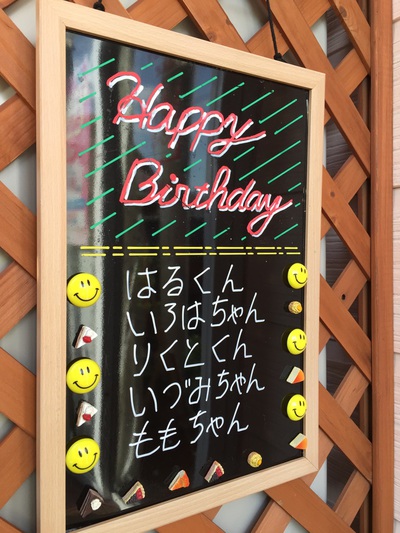 Happy
Birthday
はるくん
いろはちゃん
りくとくん
いづみちゃん
ももちゃん